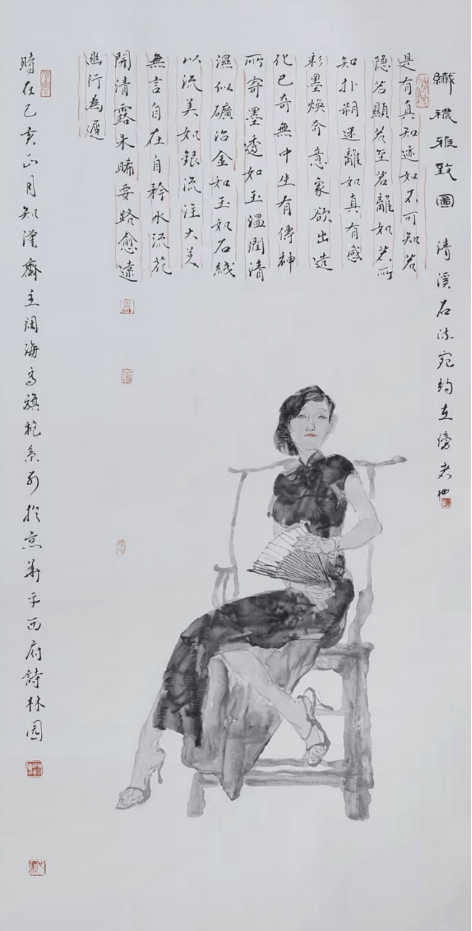 纖襛雅致圖 清溪若流宛約在傍
是有真知迹如不可知若
隐若顯若至若離如若所
知扑朔迷離如真有感
彩墨煥奇意象欲出造
化已奇無中生有傳神
所寄墨透如玉溫潤清
濕似礦冶金如玉如石綫
以流美如銀流注大美
無言自在自矜水流花
開清露未晞要路愈遠
幽行為遲
時在己亥正月知漢齋主阔海寫旗袍系列於京華平西府詩林園